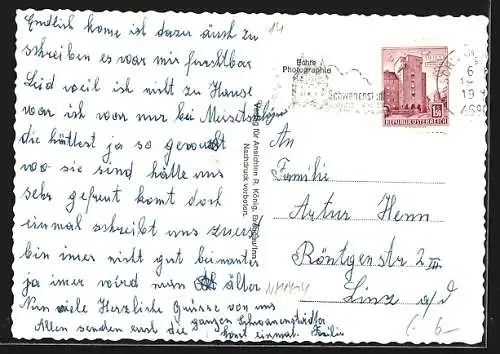 Endlich kome ist dazu auch zu
schreiben es war mir furchtbar
Leid weil ich nicht zu Hause
war ich war nur bei
die hättest ja so
wo sie sind hätte uns
sehr gefreut komt doch
einmal schreibt uns
bin imer nicht gut beinander
ja imer wird man älter
Nun viele Herzliche Grüsse von uns
Allen senden euch die ganzen
komt einmal. Familie
14
Echte
Photographie
Schwanenstadt
REPUBLIK ÖSTERREICH
Verlag für Ansichten R. König, Braunau/Inn
Nachdruck verboten.
An
Familie
Artur Henn
Röntgenstr 2 III
Linz a/d
6-